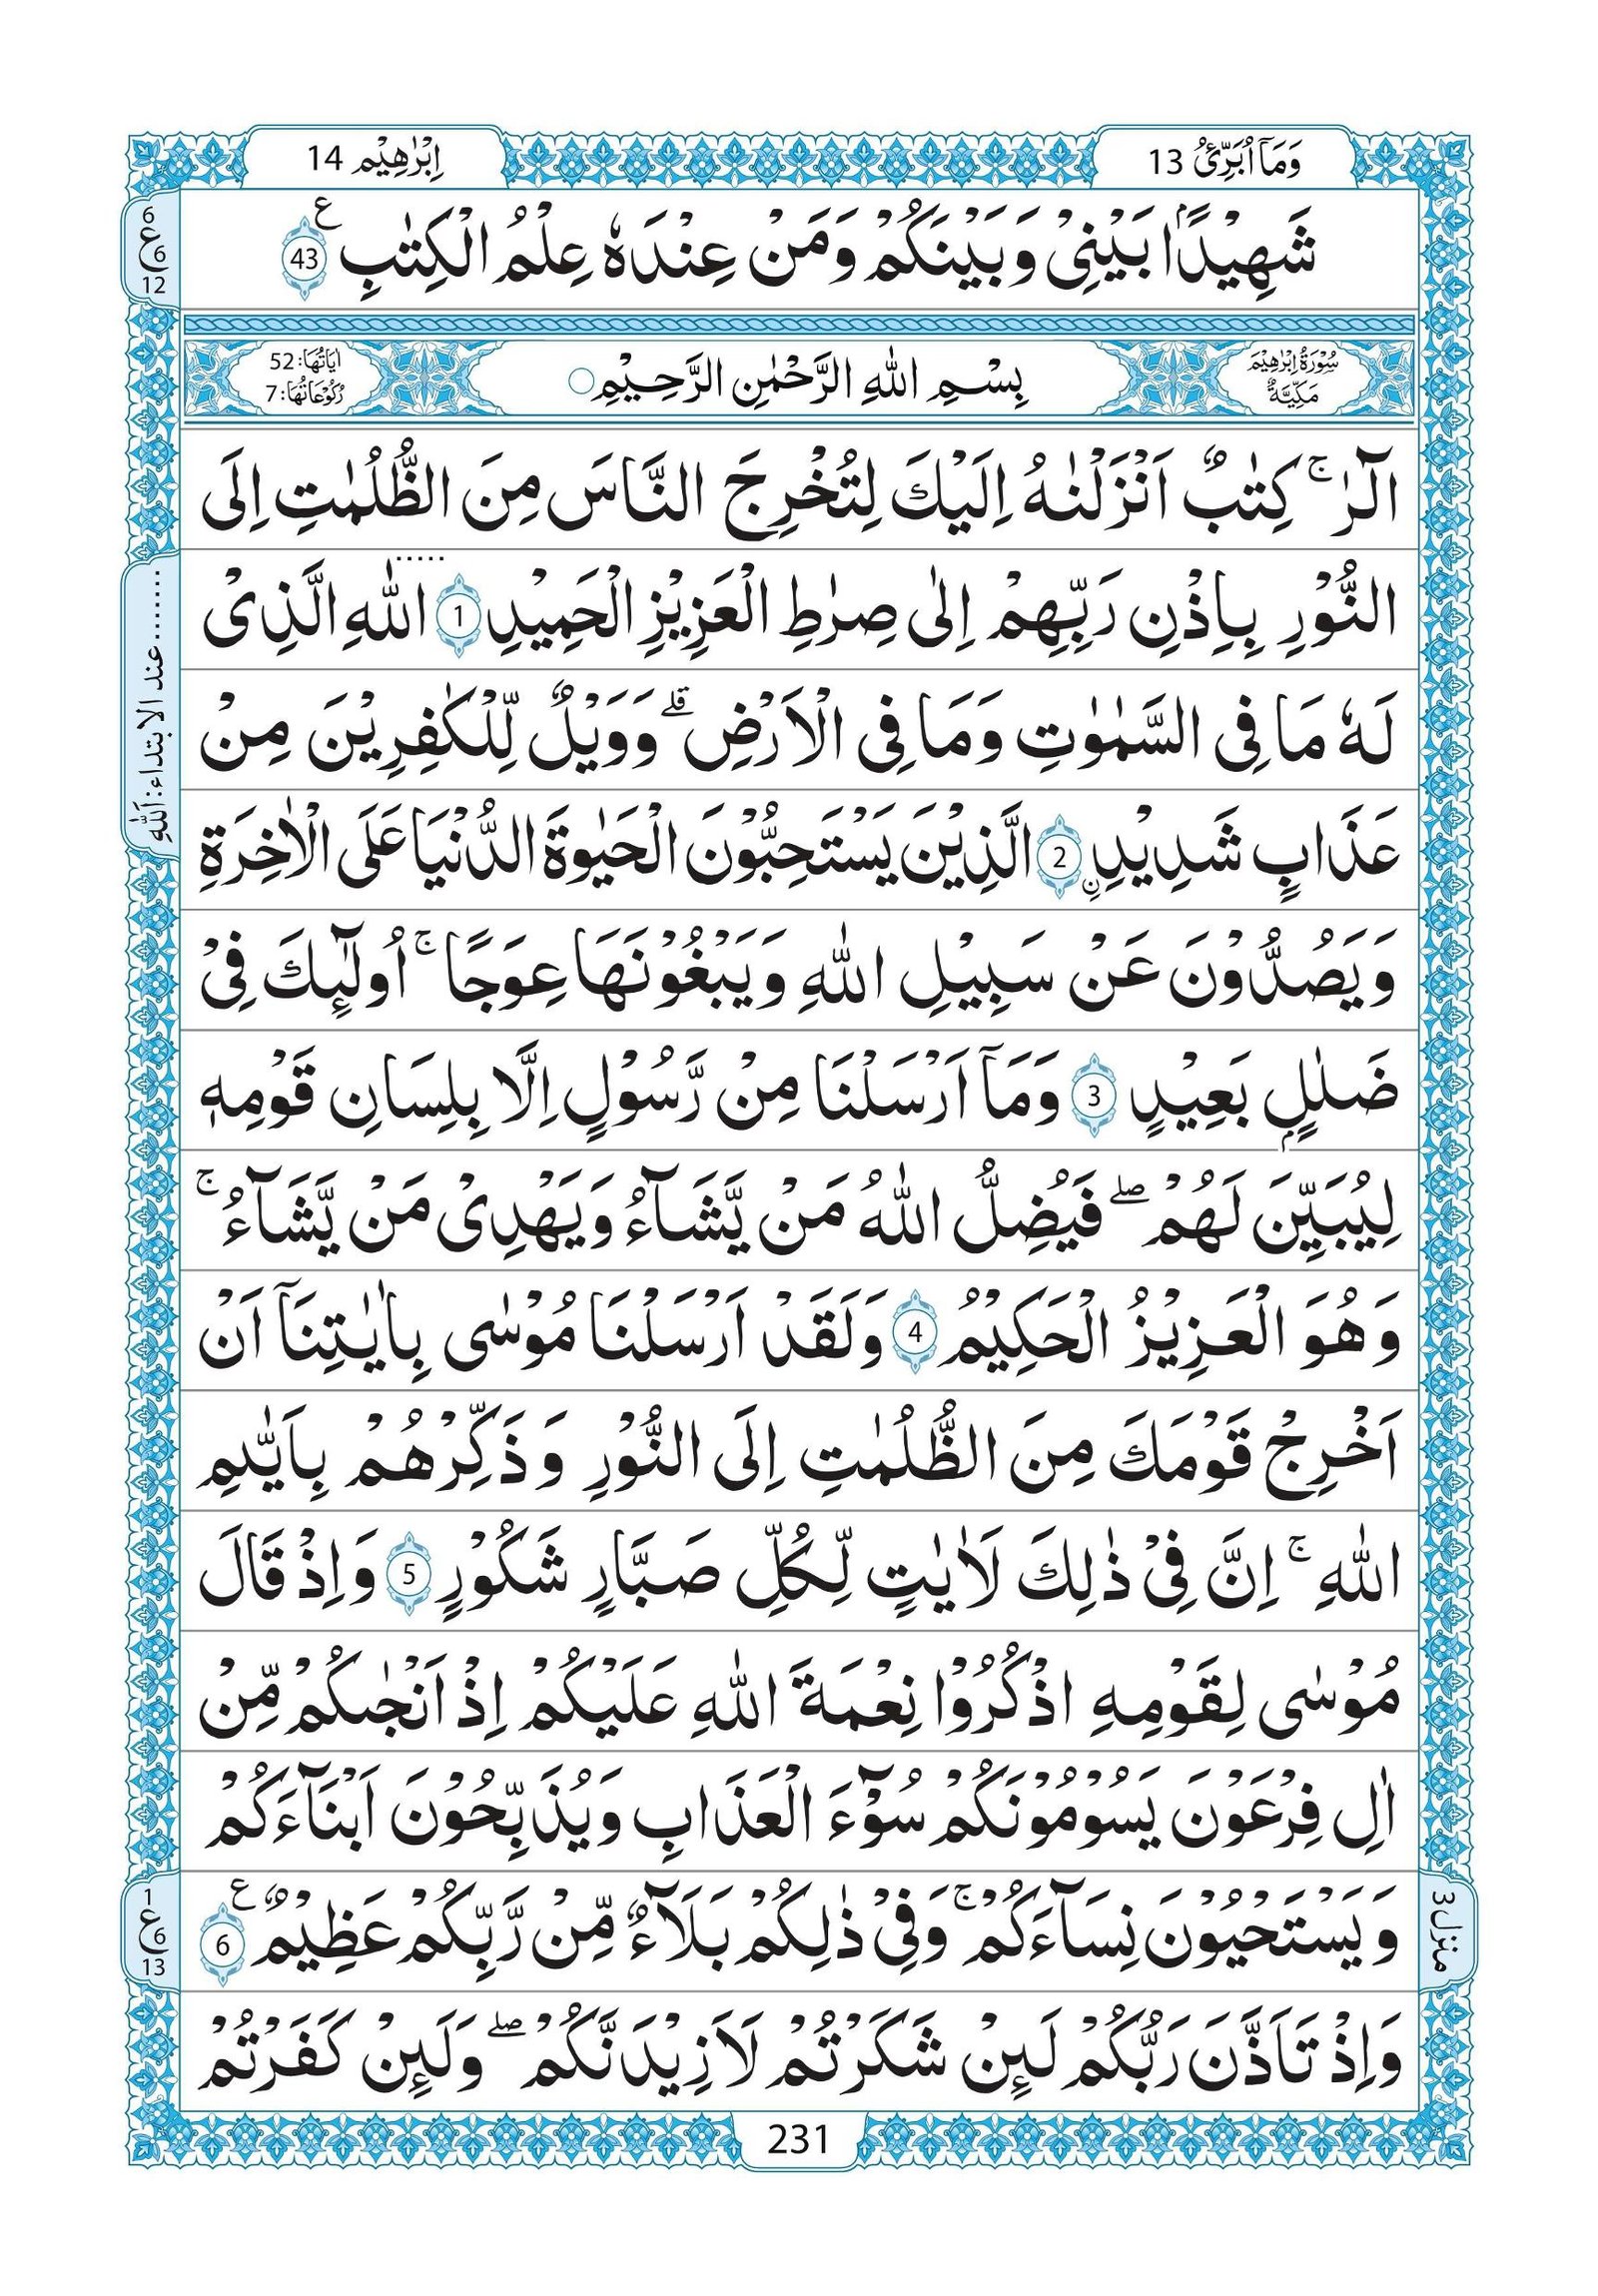 وَمَاۤ اُبَرِّئُ 13
اِبْرٰهِيْم 14
شَهِيْدًۢا بَيْنِىْ وَبَيْنَكُمْ وَمَنْ عِنْدَهٗ عِلْمُ الْكِتٰبِ ۧ 43
6
ع 6
12
سُوْرَةُ اِبْرٰهِيْمَ
مَكِّيَّةٌ
بِسْمِ اللّٰهِ الرَّحْمٰنِ الرَّحِيْمِ ○
اٰيَاتُهَا: 52
رُكُوْعَاتُهَا: 7
الٓرٰ ۚ كِتٰبٌ اَنْزَلْنٰهُ اِلَيْكَ لِتُخْرِجَ النَّاسَ مِنَ الظُّلُمٰتِ اِلَى
النُّوْرِ بِاِذْنِ رَبِّهِمْ اِلٰى صِرٰطِ الْعَزِيْزِ الْحَمِيْدِ 1 اللّٰهِ الَّذِىْ
.......عند الابتداء: اَللّٰهِ
لَهٗ مَا فِى السَّمٰوٰتِ وَمَا فِى الْاَرْضِ ۗ وَوَيْلٌ لِّلْكٰفِرِيْنَ مِنْ
عَذَابٍ شَدِيْدِ ۨ 2 الَّذِيْنَ يَسْتَحِبُّوْنَ الْحَيٰوةَ الدُّنْيَا عَلَى الْاٰخِرَةِ
وَيَصُدُّوْنَ عَنْ سَبِيْلِ اللّٰهِ وَيَبْغُوْنَهَا عِوَجًا ۚ اُولٰٓئِكَ فِىْ
ضَلٰلٍۭ بَعِيْدٍ 3 وَمَاۤ اَرْسَلْنَا مِنْ رَّسُوْلٍ اِلَّا بِلِسَانِ قَوْمِهٖ
لِيُبَيِّنَ لَهُمْ ۖ فَيُضِلُّ اللّٰهُ مَنْ يَّشَآءُ وَيَهْدِىْ مَنْ يَّشَآءُ ۚ
وَهُوَ الْعَزِيْزُ الْحَكِيْمُ 4 وَلَقَدْ اَرْسَلْنَا مُوْسٰى بِاٰيٰتِنَاۤ اَنْ
اَخْرِجْ قَوْمَكَ مِنَ الظُّلُمٰتِ اِلَى النُّوْرِ وَذَكِّرْهُمْ بِاَيّٰىمِ
اللّٰهِ ۚ اِنَّ فِىْ ذٰلِكَ لَاٰيٰتٍ لِّكُلِّ صَبَّارٍ شَكُوْرٍ 5 وَاِذْ قَالَ
مُوْسٰى لِقَوْمِهِ اذْكُرُوْا نِعْمَةَ اللّٰهِ عَلَيْكُمْ اِذْ اَنْجٰىكُمْ مِّنْ
اٰلِ فِرْعَوْنَ يَسُوْمُوْنَكُمْ سُوْٓءَ الْعَذَابِ وَيُذَبِّحُوْنَ اَبْنَآءَكُمْ
وَيَسْتَحْيُوْنَ نِسَآءَكُمْ ۚ وَفِىْ ذٰلِكُمْ بَلَآءٌ مِّنْ رَّبِّكُمْ عَظِيْمٌ ۧ 6
1
ع 6
13
منزل 3
وَاِذْ تَاَذَّنَ رَبُّكُمْ لَئِنْ شَكَرْتُمْ لَاَزِيْدَنَّكُمْ ۖ وَلَئِنْ كَفَرْتُمْ
231